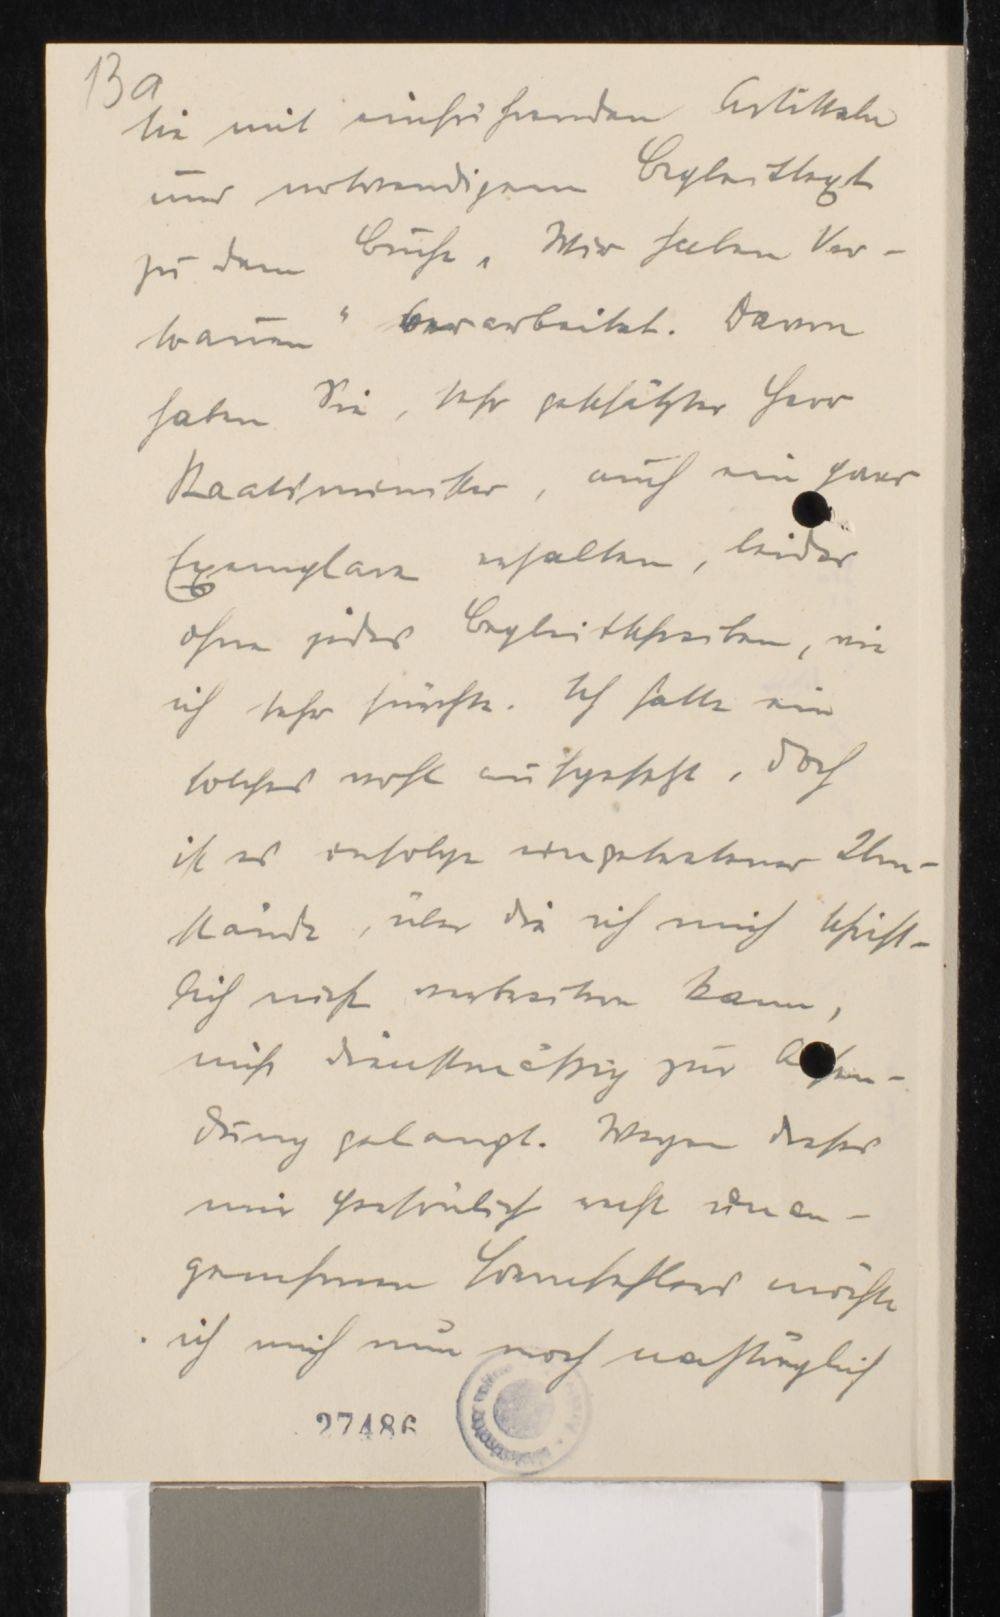 13a
sie mit einführenden Artikeln
und notwendigem Begleittext
zu dem Buche „Wir haben Ver-
trauen" verarbeitet. Davon
haben Sie, sehr geschätzter Herr
Staatsminister, auch ein paar
Exemplare erhalten, leider
ohne jedes Begleitschreiben, wie
ich sehr fürchte. Ich hatte ein
solches wohl aufgesetzt, doch
ist es infolge eingetretener Um-
stände, über die ich mich schrift-
lich nicht verbreiten kann,
nicht dienstmäßig zur Absen-
dung gelangt. Wegen dieses
mir persönlich recht unan-
genehmen Formfehlers möchte
ich mich nun noch nachträglich
27486